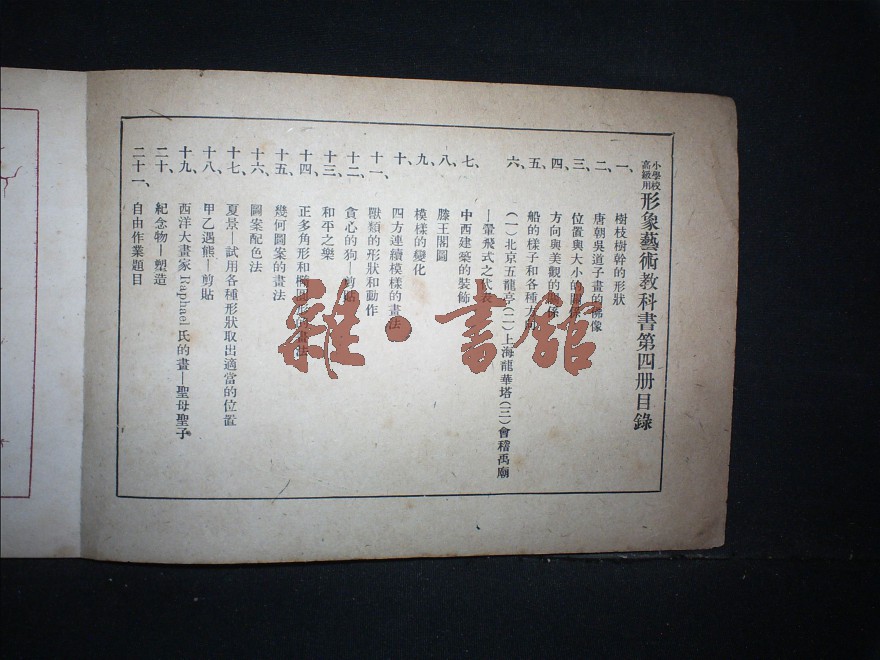 小學校高級用 形象藝術教科書第四册目錄
一、樹枝樹幹的形狀
二、唐朝吳道子畫的佛像
三、位置與大小的關係
四、方向與美觀的關係
五、船的樣子和各種方向
六、(一)北京五龍亭(二)上海龍華塔(三)會稽禹廟
—暈飛式之代表
七、中西建築的裝飾
八、滕王閣圖
九、模樣的變化
十、四方連續模樣的畫法
十一、獸類的形狀和動作
十二、貪心的狗—剪貼
十三、和平之樂
十四、正多角形和橢圓形的畫法
十五、幾何圖案的畫法
十六、圖案配色法
十七、夏景—試用各種形狀取出適當的位置
十八、甲乙遇熊—剪貼
十九、西洋大畫家Raphael氏的畫—聖母聖子
二十、紀念物—塑造
二十一、自由作業題目
雜·書館